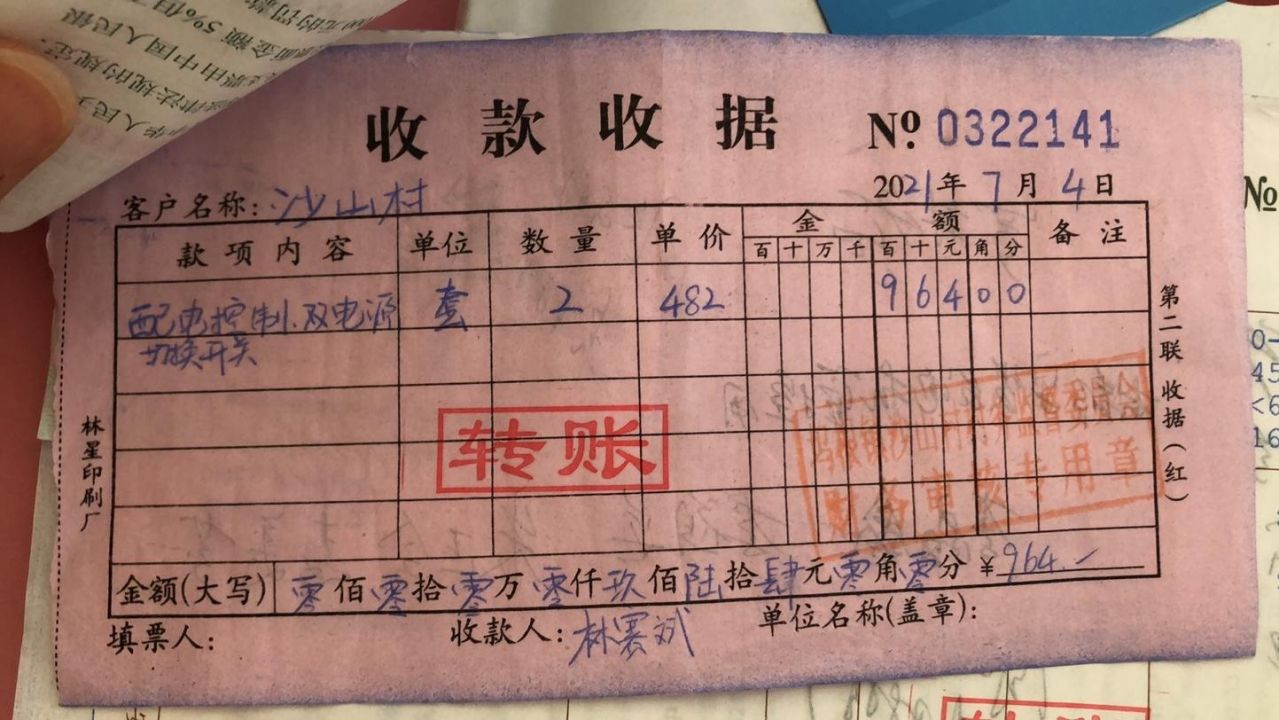 收款收据 Nº 0322141
2021年7月4日
客户名称：沙山村
款项内容 单位 数量 单价 金额 备注
百十万千百十元角分
配电控制.双电源 套 2 482 96400
切换开关
转账
村务监督委员会
财务审核专用章
金额(大写) 零佰零拾零万零仟玖佰陆拾肆元零角零分 ¥964.-
填票人： 收款人：林赛斌 单位名称(盖章)：
第二联 收据(红)
林星印刷厂
Nº